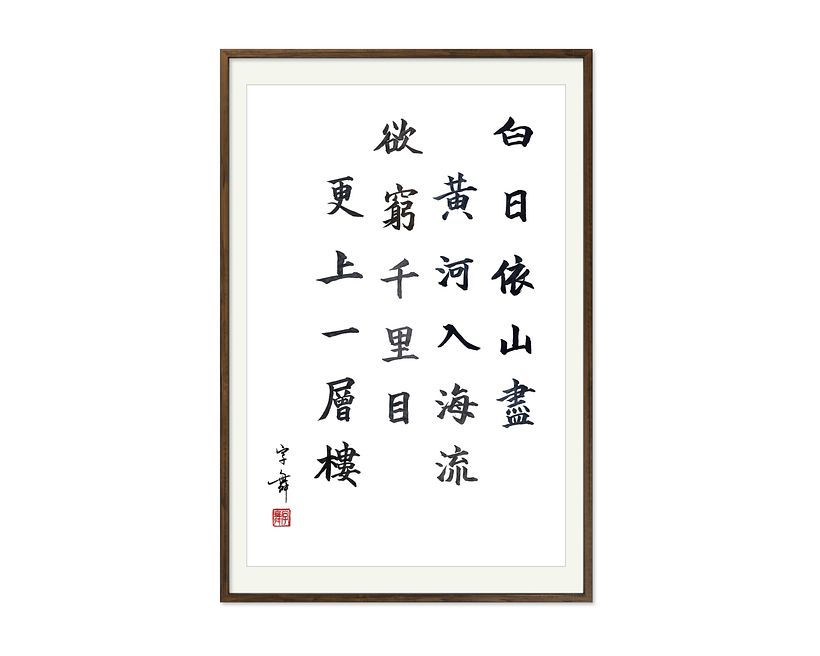 白日依山盡
黃河入海流
欲窮千里目
更上一層樓
字舞